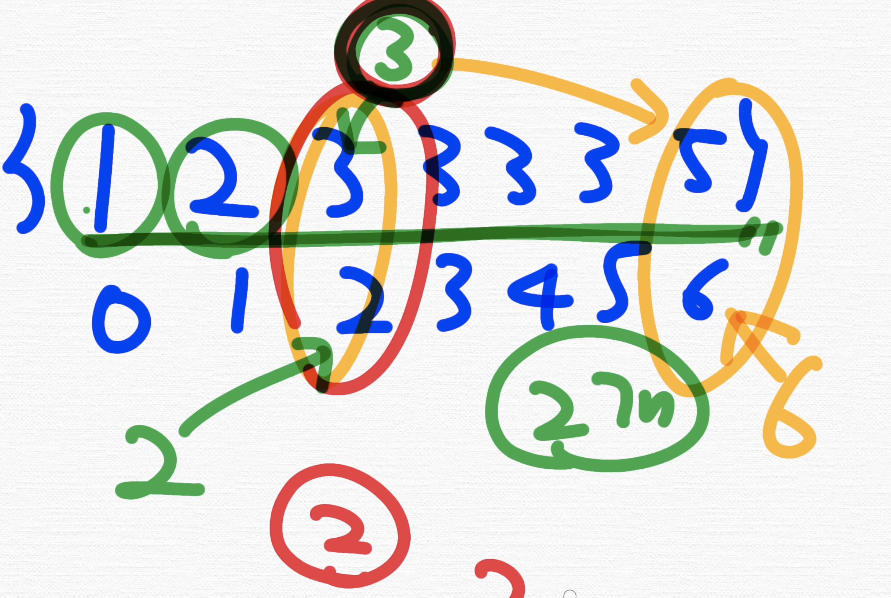 3
{ 1 2 3 3 3 3 5 }
0 1 2 3 4 5 6
2 7n 6
2
2